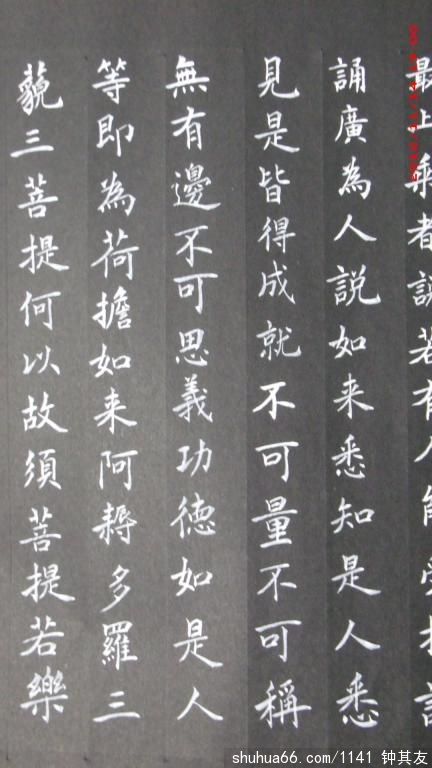 最上乘者說若有人能受持讀
誦廣為人說如来悉知是人悉
見是皆得成就不可量不可稱
無有邊不可思義功德如是人
等即為荷擔如来阿耨多羅三
藐三菩提何以故須菩提若樂
shuhua66.com/1141 钟其友